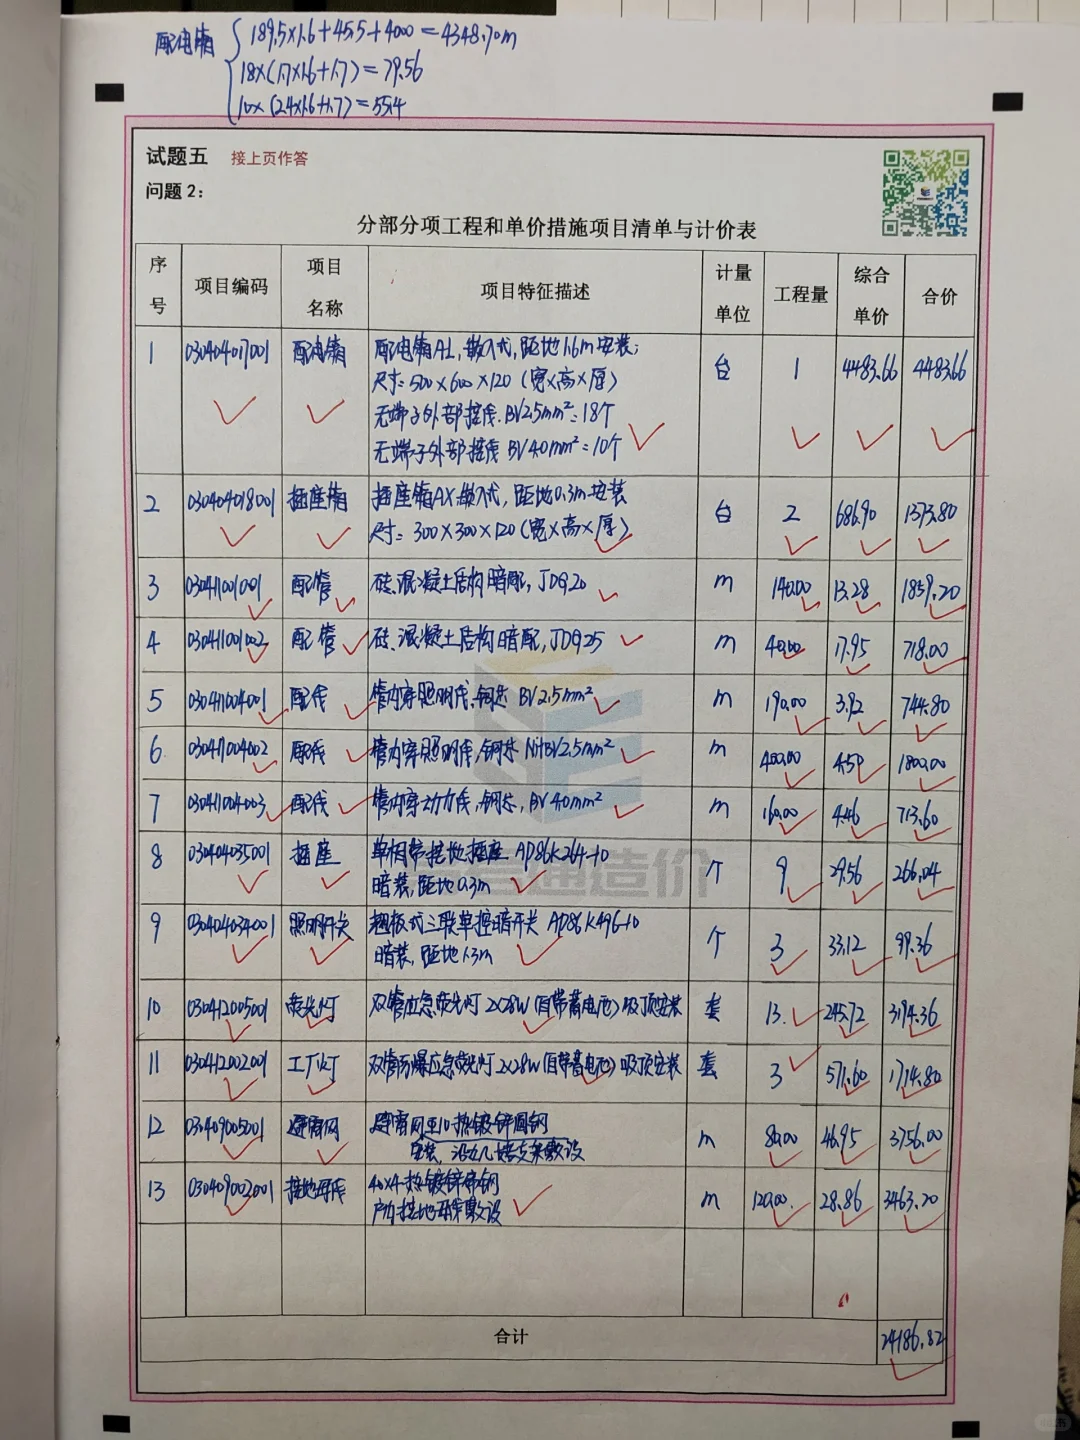 配电箱 189.5×1.6+45.5+4000=4348.70m
18×(1.7×1.6+1.7)=79.56
10×(2.4×1.6+1.7)=55.4
试题五 接上页作答
问题 2：
分部分项工程和单价措施项目清单与计价表
序号 项目编码 项目名称 项目特征描述 计量单位 工程量 综合单价 合价
1 030404017001 配电箱 配电箱AL,嵌入式,距地1.6m安装; 台 1 4483.66 4483.66
尺寸:500×600×120(宽×高×厚)
无端子外部接线.BV2.5mm²:18个
无端子外部接线 BV4.0mm²:10个
2 030404018001 插座箱 插座箱AX嵌入式,距地0.3m安装 台 2 686.90 1373.80
尺寸:300×300×120(宽×高×厚)
3 030411001001 配管 砖、混凝土结构暗配,JDG20 m 140.00 13.28 1859.20
4 030411001002 配管 砖、混凝土结构暗配,JDG25 m 40.00 17.95 718.00
5 030411004001 配线 管内穿照明线,铜芯 BV2.5mm² m 190.00 3.92 744.80
6 030411004002 配线 管内穿照明线,铜芯 NHBV2.5mm² m 400.00 4.50 1800.00
7 030411004003 配线 管内穿动力线,铜芯,BV4.0mm² m 160.00 4.46 713.60
8 030404035001 插座 单相带接地插座 AP86K264-10 个 9 29.56 266.04
暗装,距地0.3m
9 030404034001 照明开关 翘板式三联单控暗开关 AP86K496-10 个 3 33.12 99.36
暗装,距地1.3m
10 030412005001 荧光灯 双管应急荧光灯 2×28W(自带蓄电池)吸顶安装 套 13. 245.72 3194.36
11 030412002001 工厂灯 双管防爆应急荧光灯 2×28W(自带蓄电池)吸顶安装 套 3 571.60 1714.80
12 030409005001 避雷网 避雷网 Φ10热镀锌圆钢 m 80.00 46.95 3756.00
安装,沿女儿墙支架敷设
13 030409002001 接地母线 40×4热镀锌扁钢 m 120.00 28.86 3463.20
户内接地母线敷设
合计 24186.82